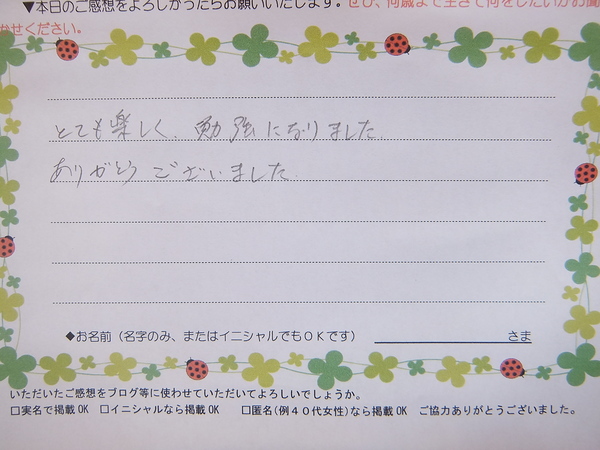 ▼本日のご感想をよろしかったらお願いいたします。ぜひ、何歳まで生きて何をしたいかお聞
かせください。
とても楽しく、勉強になりました。
ありがとうございました。
◆お名前(名字のみ、またはイニシャルでもOKです)
さま
いただいたご感想をブログ等に使わせていただいてよろしいでしょうか。
□実名で掲載 OK □イニシャルなら掲載 OK □匿名(例40代女性)なら掲載 OK ご協力ありがとうございました。